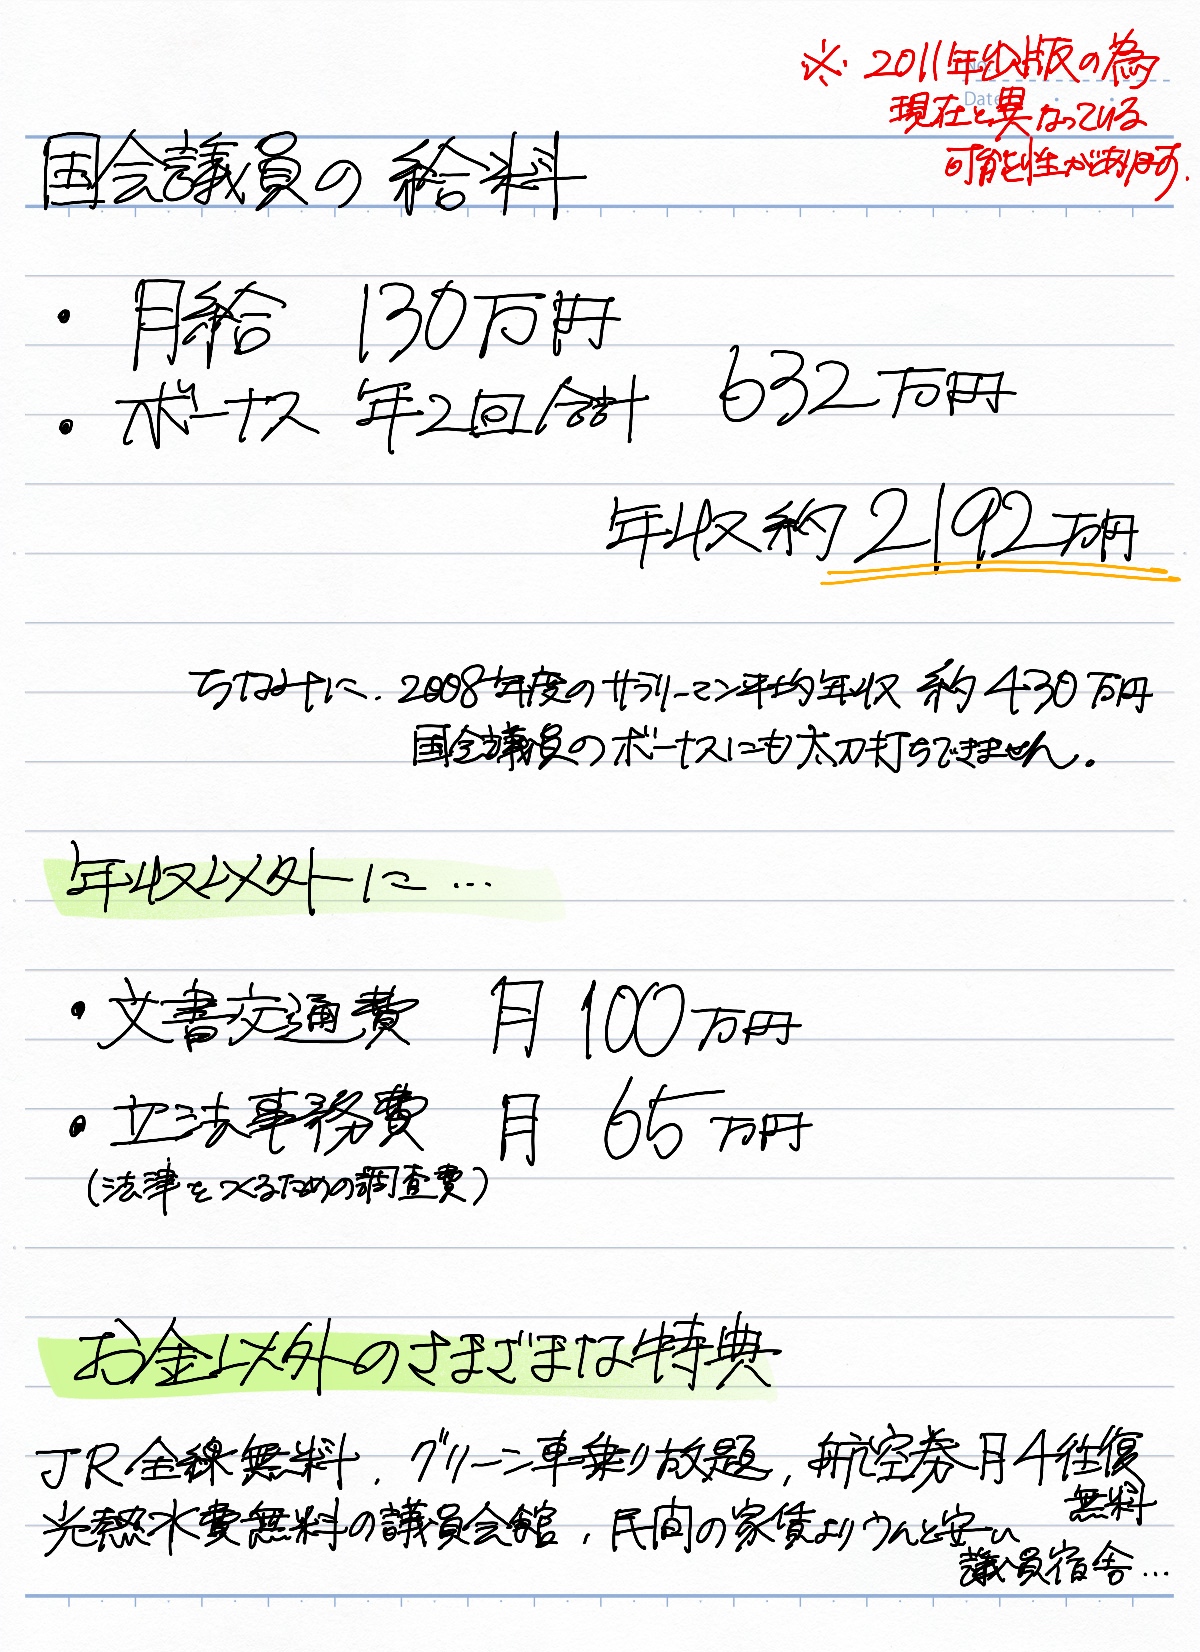 ※ 2011年出版の為
Date
現在と異なっている
可能性があります.
国会議員の給料
・ 月給 130万円
・ ボーナス 年2回合計 632万円
年収約2192万円
ちなみに、2008年度のサラリーマン平均年収 約430万円
国会議員のボーナスにも太刀打ちできません。
年収以外に…
・文書交通費 月100万円
・立法事務費 月 65万円
(法律をつくるための調査費)
お金以外のさまざまな特典
JR全線無料、グリーン車乗り放題、航空券月4往復
無料
光熱水費無料の議員会館、民間の家賃よりうんと安い
議員宿舎…